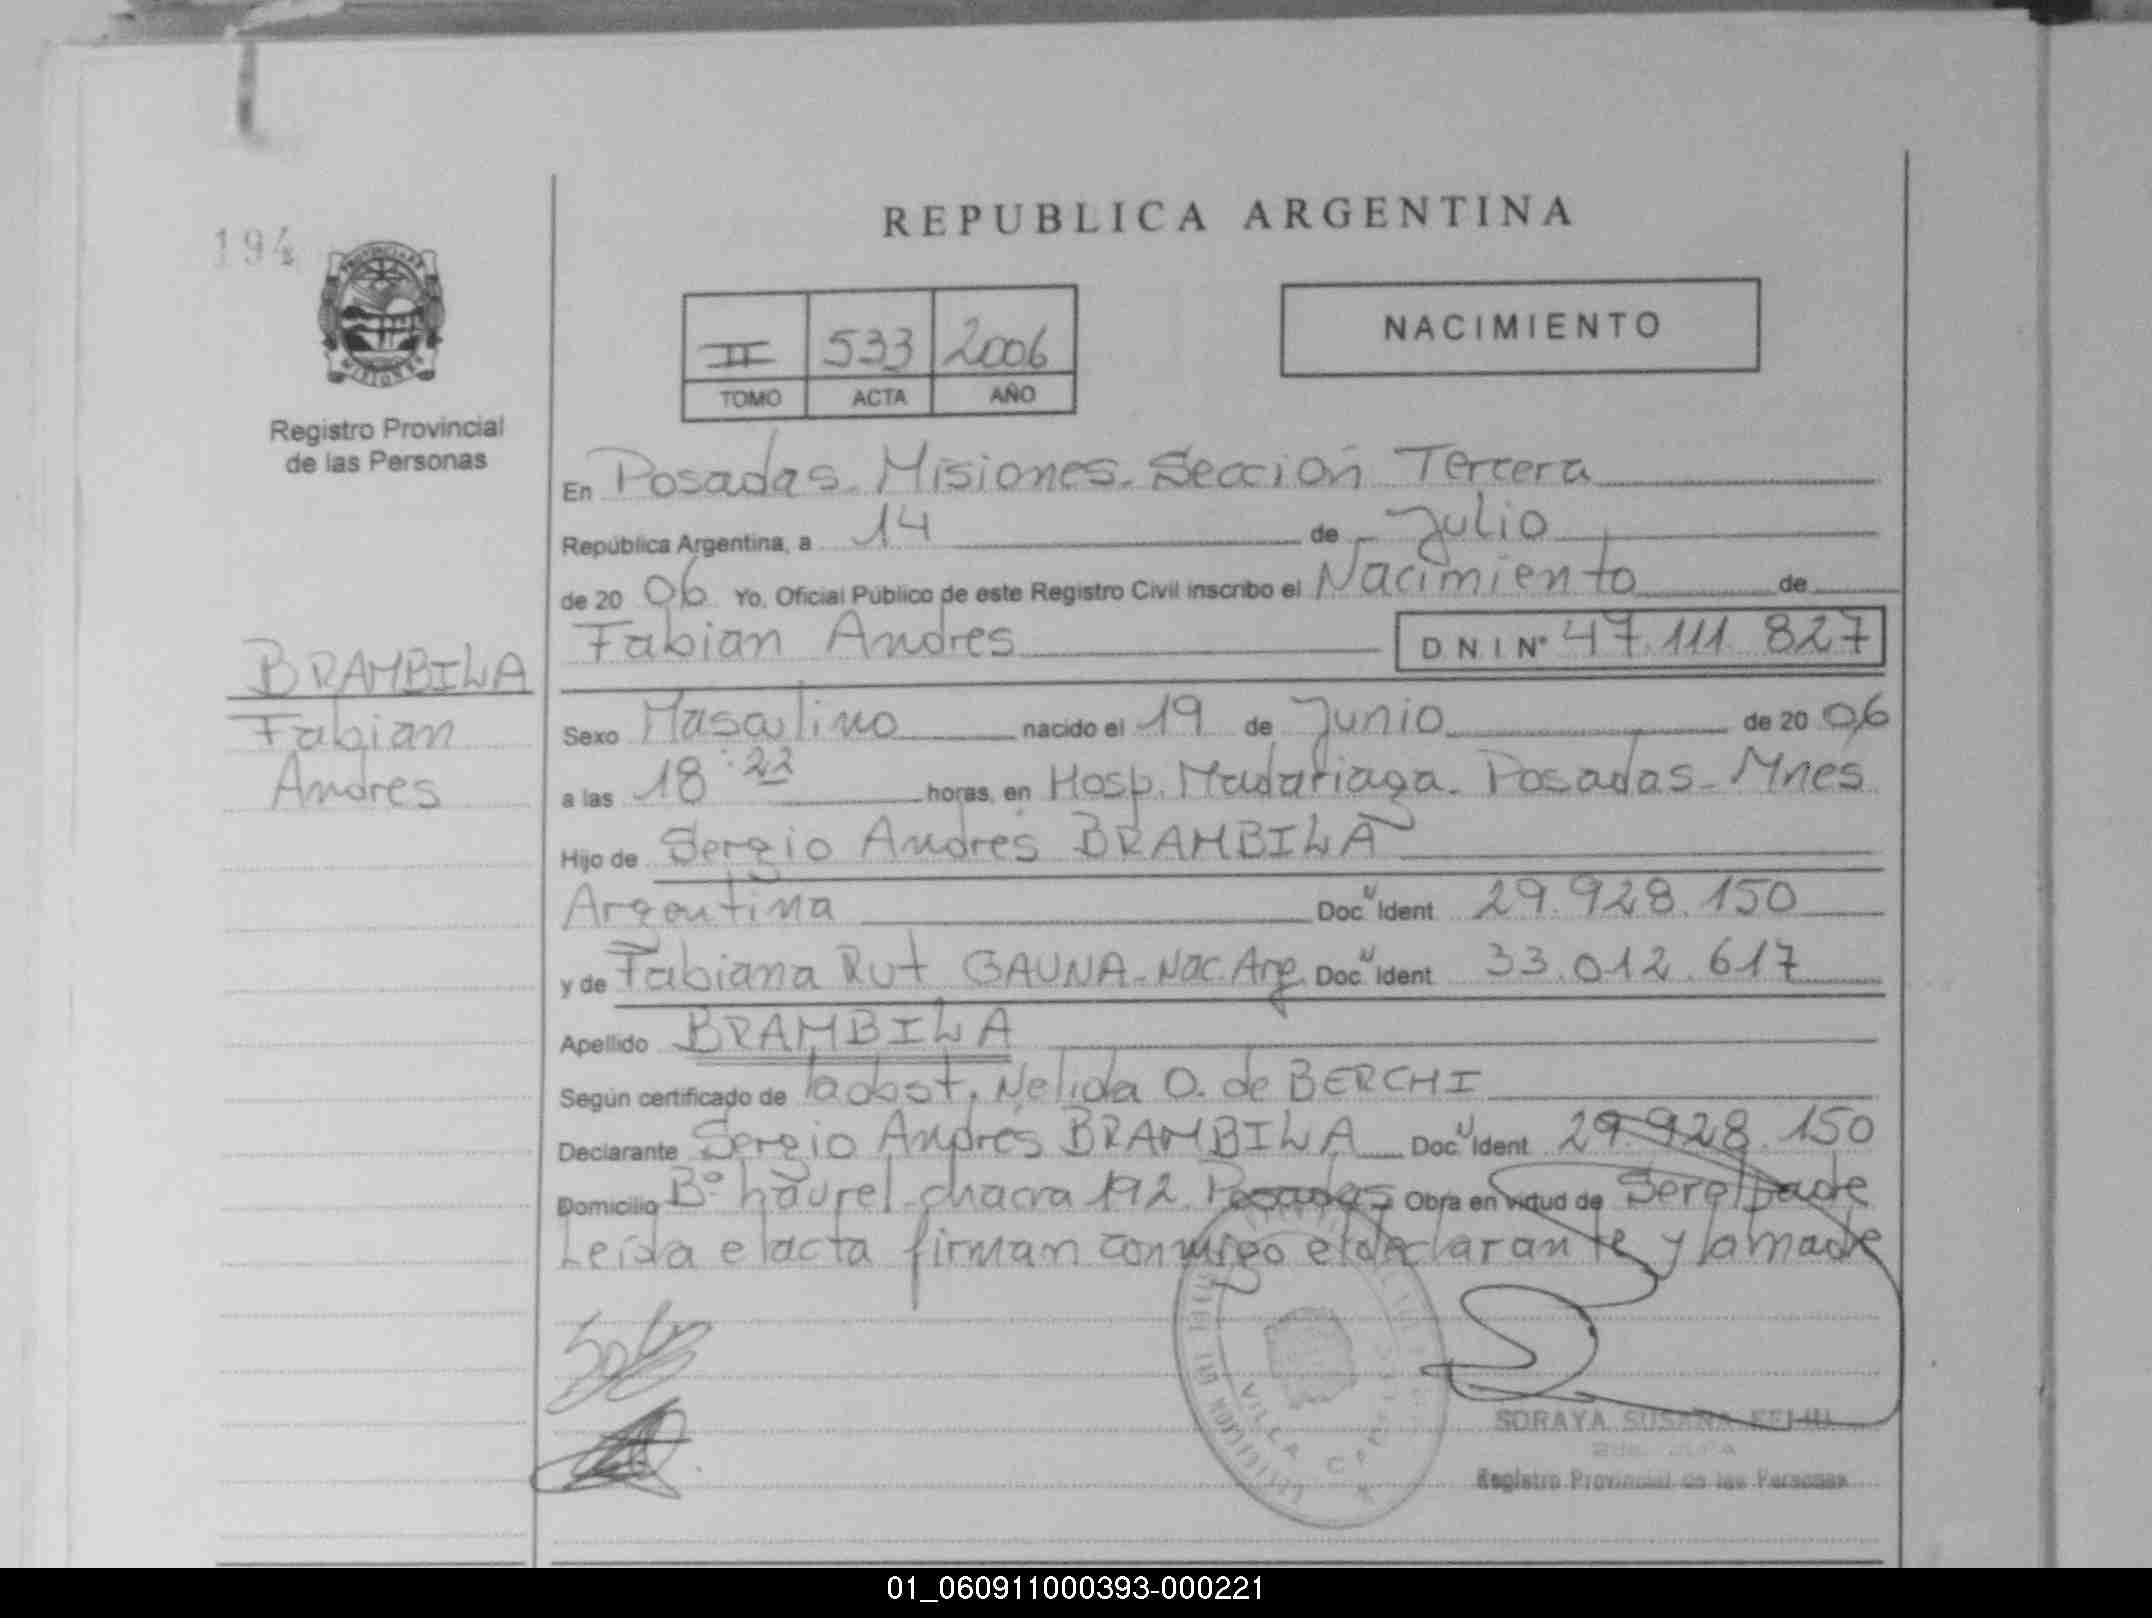 REPUBLICA ARGENTINA
194
PROVINCIA DE
MISIONES
Registro Provincial
de las Personas
II 533 2006
TOMO ACTA AÑO
NACIMIENTO
En Posadas. Misiones. Sección Tercera
República Argentina, a 14 de Julio
de 20 06 Yo, Oficial Público de este Registro Civil inscribo el Nacimiento de
Fabian Andres DNI Nº 47.111.827
BRAMBILA
Fabian
Andres
Sexo Masculino nacido el 19 de Junio de 20 06
a las 18:22 horas, en Hosp. Madariaga. Posadas-Mnes
Hijo de Sergio Andrés BRAMBILA
Argentina Doc. Ident 29.928.150
y de Fabiana Rut GAUNA-Nac.Arg. Doc. Ident 33.012.617
Apellido BRAMBILA
Según certificado de la obst. Nelida O. de BERCHI
Declarante Sergio Andrés BRAMBILA Doc. Ident 29.928.150
Domicilio Bº Laurel-chacra 192 Posadas Obra en virtud de Ser el padre
Leída el acta firman conmigo el declarante y la madre
VILLA
SORAYA SUSANA
Registro Provincial de las Personas
01_060911000393-000221